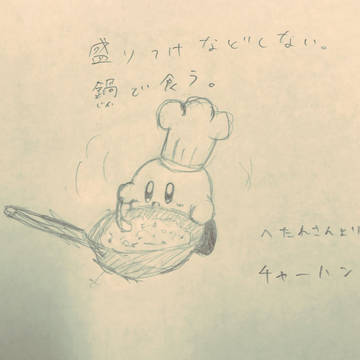 盛りつけなどしない。
鍋で食う。
へたれさんより
チャーハン